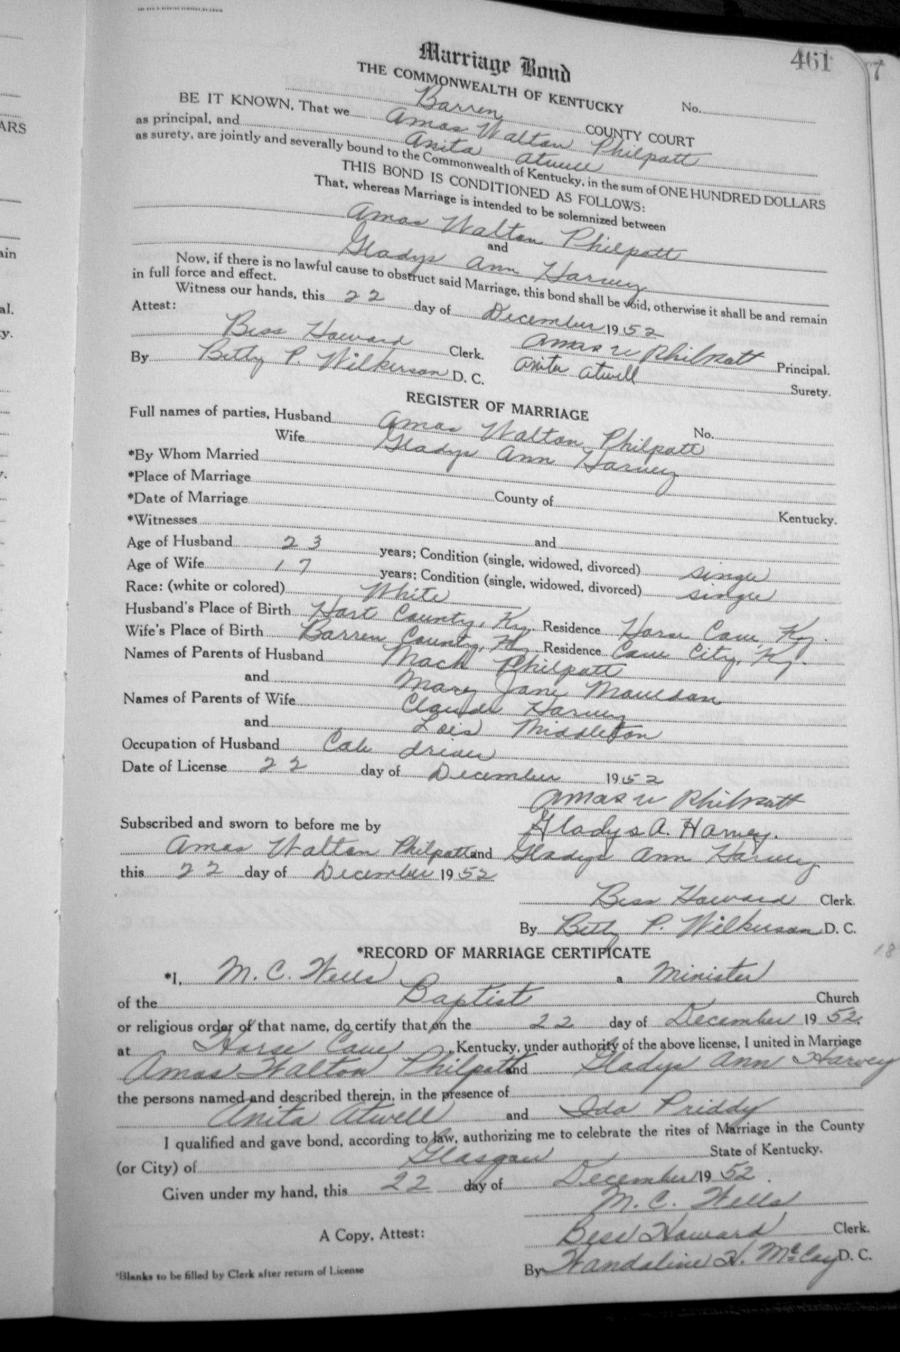 461
7
Marriage Bond
THE COMMONWEALTH OF KENTUCKY
No.
Barren COUNTY COURT
BE IT KNOWN, That we Amos Walton Philpott
as principal, and Anita Atwell
as surety, are jointly and severally bound to the Commonwealth of Kentucky, in the sum of ONE HUNDRED DOLLARS
THIS BOND IS CONDITIONED AS FOLLOWS:
That, whereas Marriage is intended to be solemnized between
Amos Walton Philpott
and
Gladys Ann Harvey
Now, if there is no lawful cause to obstruct said Marriage, this bond shall be void, otherwise it shall be and remain
in full force and effect.
Witness our hands, this 22 day of December 1952
Attest:
Amos W Philpott Principal.
Bess Howard Clerk.
Anita Atwell Surety.
By Betty P. Wilkerson D. C.
REGISTER OF MARRIAGE
No.
Full names of parties, Husband Amos Walton Philpott
Wife Gladys Ann Harvey
*By Whom Married
*Place of Marriage
County of Kentucky.
*Date of Marriage
*Witnesses and
Age of Husband 23 years; Condition (single, widowed, divorced) single
Age of Wife 17 years; Condition (single, widowed, divorced) single
Race: (white or colored) White
Husband's Place of Birth Hart County, Ky. Residence Horse Cave Ky.
Wife's Place of Birth Barren County, Ky. Residence Cave City, Ky.
Names of Parents of Husband Mack Philpott
and Mary Jane Mauldan
Names of Parents of Wife Claude Harvey
and Lois Middleton
Occupation of Husband Cab driver
Date of License 22 day of December 1952
Amos W Philpott
Subscribed and sworn to before me by Gladys A. Harvey.
Amos Walton Philpott and Gladys Ann Harvey
this 22 day of December 1952
Bess Howard Clerk.
By Betty P. Wilkerson D. C.
18
*RECORD OF MARRIAGE CERTIFICATE
*I, M. C. Wells a Minister
of the Baptist Church
or religious order of that name, do certify that on the 22 day of December 1952.
at Horse Cave, Kentucky, under authority of the above license, I united in Marriage
Amos Walton Philpott and Gladys Ann Harvey
the persons named and described therein, in the presence of
Anita Atwell and Ida Priddy
I qualified and gave bond, according to law, authorizing me to celebrate the rites of Marriage in the County
(or City) of Glasgow State of Kentucky.
Given under my hand, this 22 day of December 1952.
M. C. Wells
A Copy, Attest: Bess Howard Clerk.
By Wandaline H. McCoy D. C.
*Blanks to be filled by Clerk after return of License